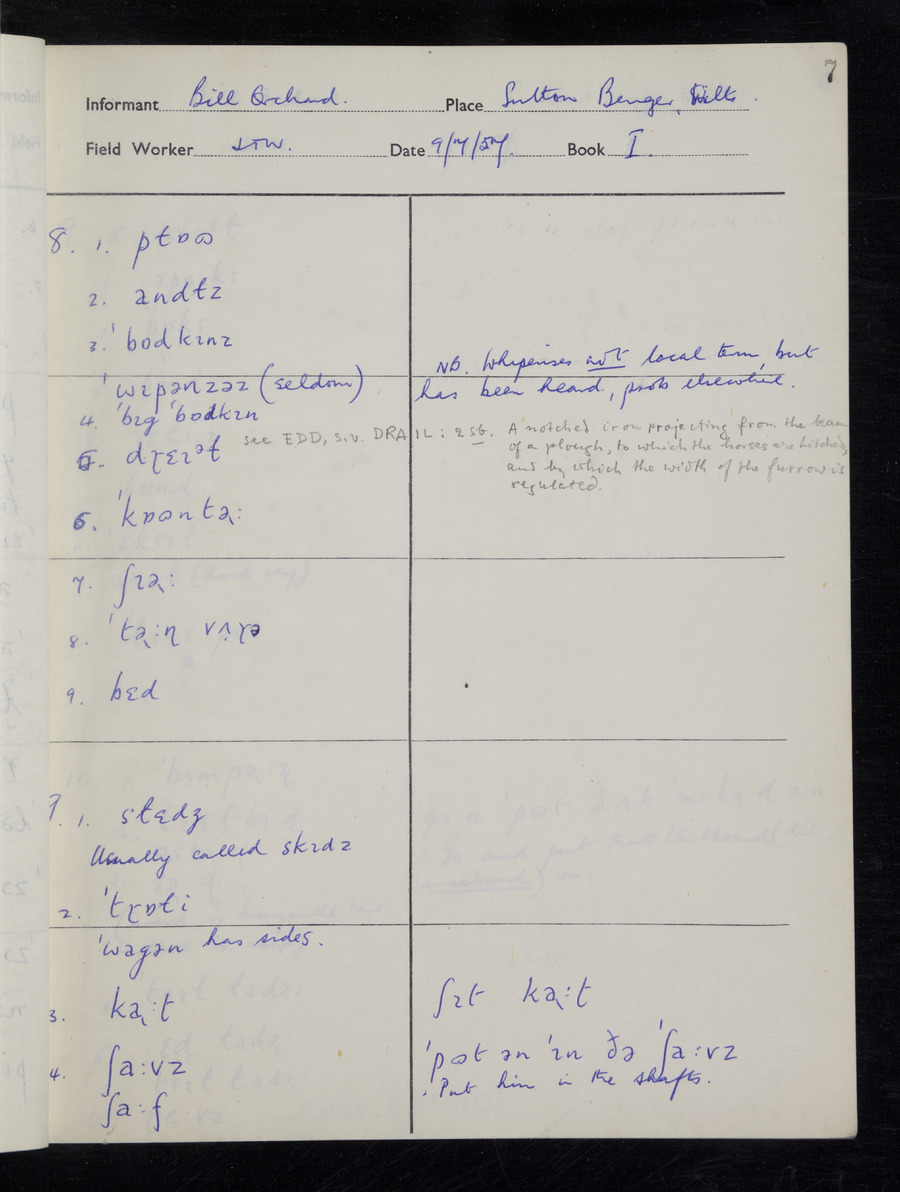 7
Informant Bill Orchard. Place Sutton Benger, Wilts.
Field Worker Date 9/7/57. Book I.
8. 1. plɒʊ
2. andlz
3. ˈbɒdkɪnz
ˈwɪpənzəz (seldom)
NB. Whipenses not local term, but
has been heard, prob elsewhere.
4. ˈbɪg ˈbɒdkɪn
5. dɽɛɪᵊt
see EDD, s.v. DRAIL: 2 sb. A notched iron projecting from the beam
of a plough, to which the horses are hitched,
and by which the width of the furrow is
regulated.
6. ˈkɒʊntə˞:
7. ʃɪə˞:
8. ˈtə˞:ɳ
9. bɛd
9. 1. slɛdʒ
Usually called skɪdz
2. ˈtɽɒli
ˈwagən has sides.
3. ka˞:t
ʃɪt ka˞:t
4. ʃa:vz
ˈpʊt ən ˈɪn ðə ˈʃa:vz
ʃa:f
Put him in the shafts.